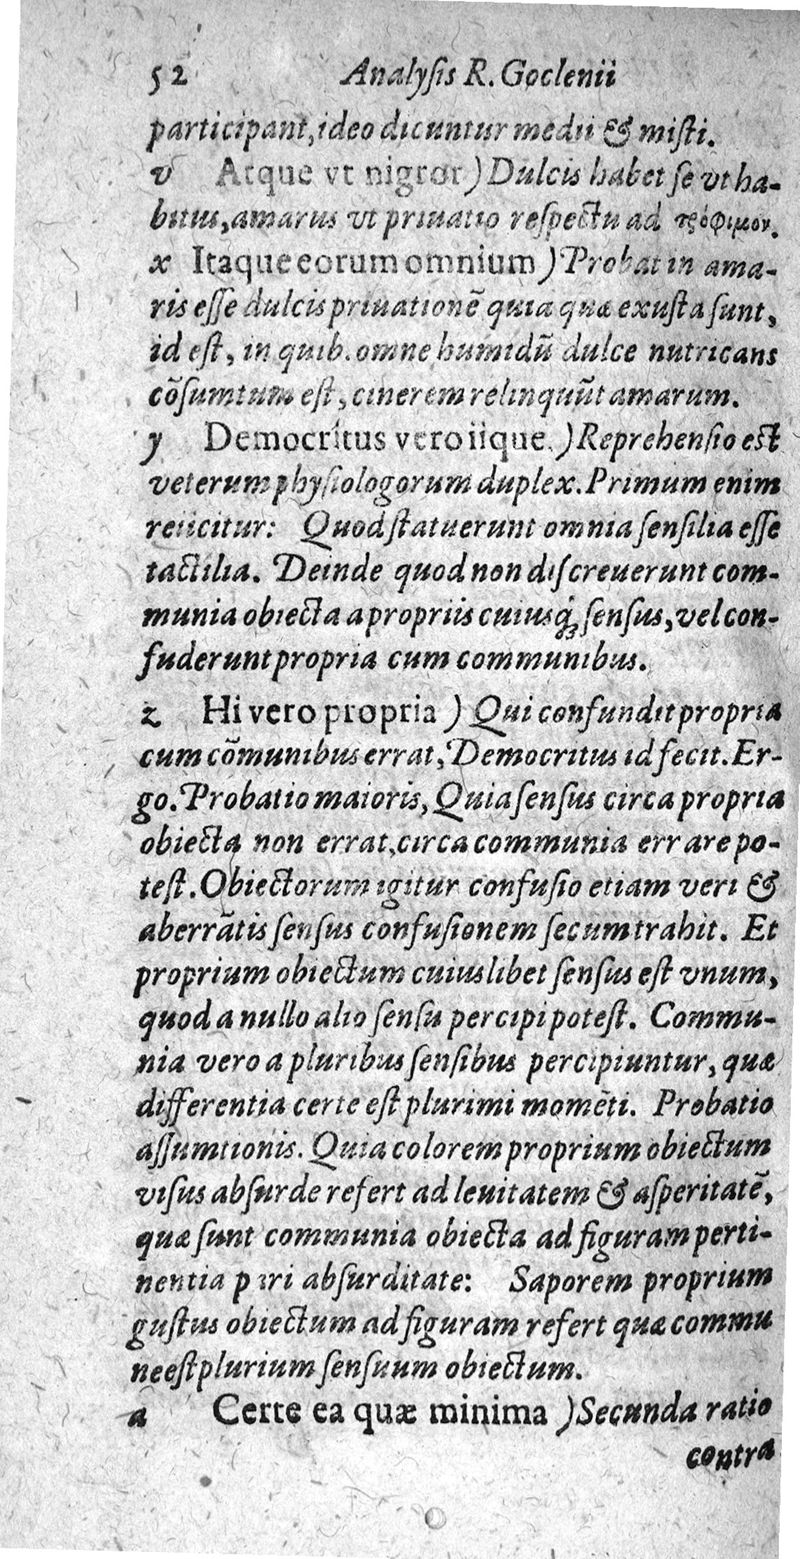 52 Analyſis R. Goclenii
participant, ideo dicuntur medii & miſti.
v Atque vt nigror) Dulcis habet ſe vt ha-
bitus, amarus vt priuatio reſpectu ad τρόφιμον.
x Itaque eorum omnium) Probat in ama-
ris eſſe dulcis priuationē quia quæ exuſta ſunt,
id eſt, in quib. omne humidū dulce nutricans
cōſumtum eſt, cinerem relinquūt amarum.
y Democritus vero iique.) Reprehenſio est
veterum phyſiologorum duplex. Primum enim
reiicitur: Quod ſtatuerunt omnia ſenſilia eſſe
tactilia. Deinde quod non diſcreuerunt com-
munia obiecta a propriis cuiusq́ꝫ ſenſus, vel con-
fuderunt propria cum communibus.
z Hi vero propria) Qui confundit propria
cum cōmunibus errat, Democritus id fecit. Er-
go. Probatio maioris, Quia ſenſus circa propria
obiecta non errat, circa communia errare po-
teſt. Obiectorum igitur confuſio etiam veri &
aberrātis ſenſus confuſionem ſecum trahit. Et
proprium obiectum cuiuslibet ſenſus eſt vnum,
quod a nullo alio ſenſu percipi poteſt. Commu-
nia vero a pluribus ſenſibus percipiuntur, quæ
differentia certe eſt plurimi momēti. Probatio
aſſumtionis. Quia colorem proprium obiectum
viſus abſurde refert ad leuitatem & aſperitatē,
quæ ſunt communia obiecta ad figuram perti-
nentia pari abſurditate: Saporem proprium
guſtus obiectum ad figuram refert quæ commu
ne eſt plurium ſenſuum obiectum.
a Certe ea quæ minima) Secunda ratio
contra